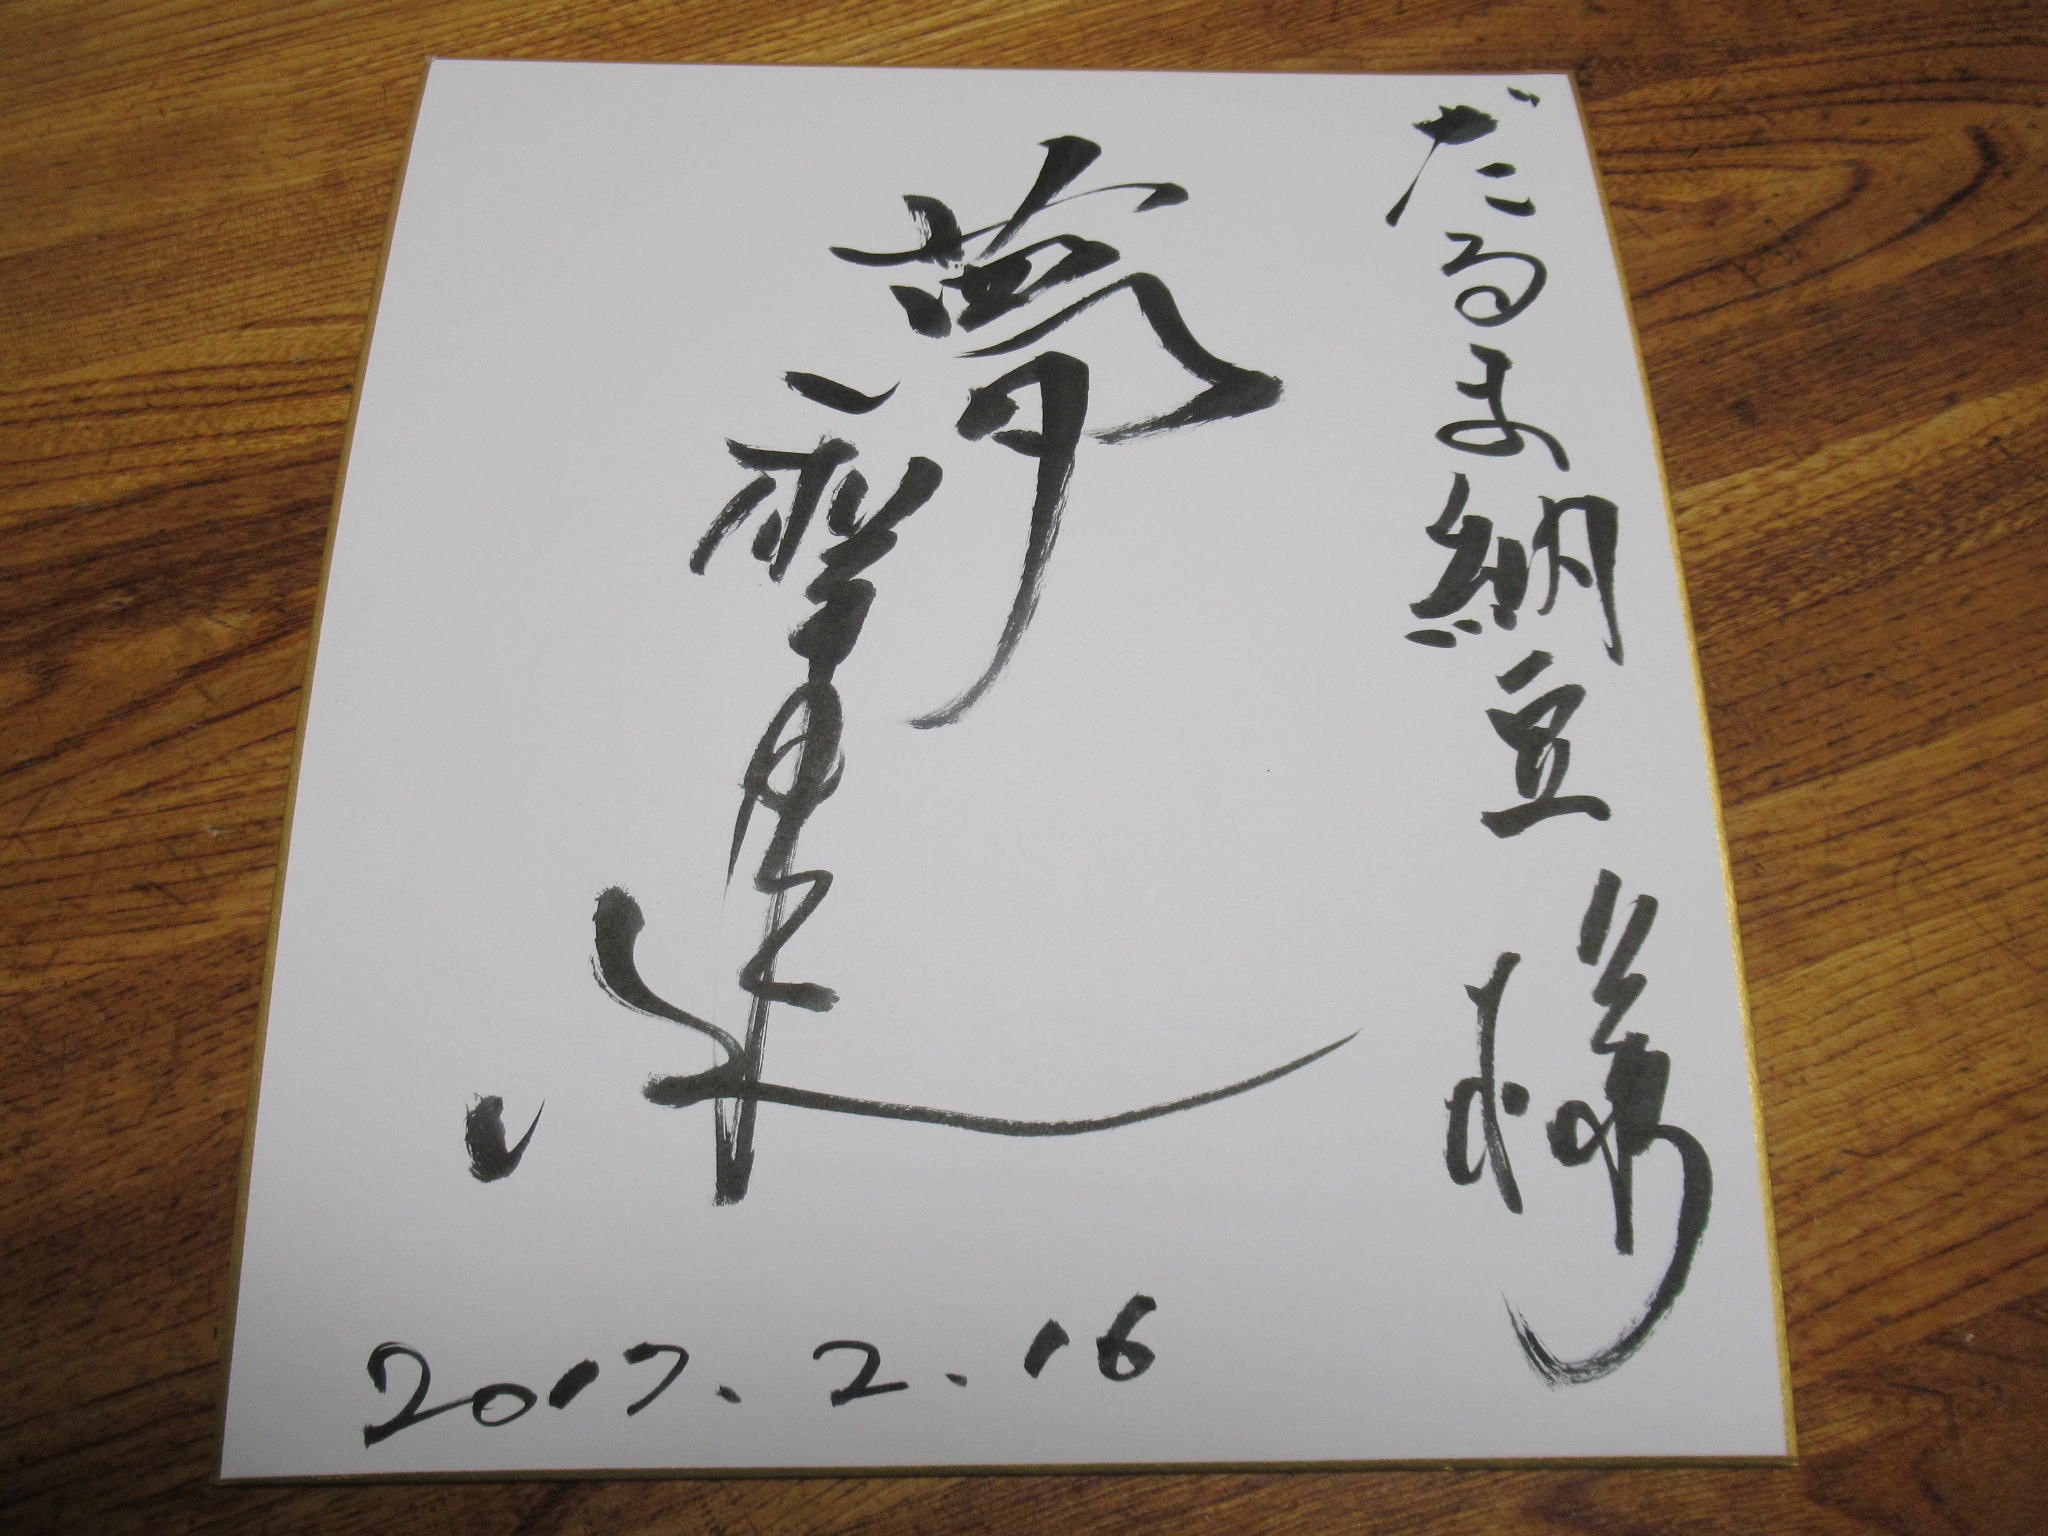 だるま納豆様
夢
2017.2.16